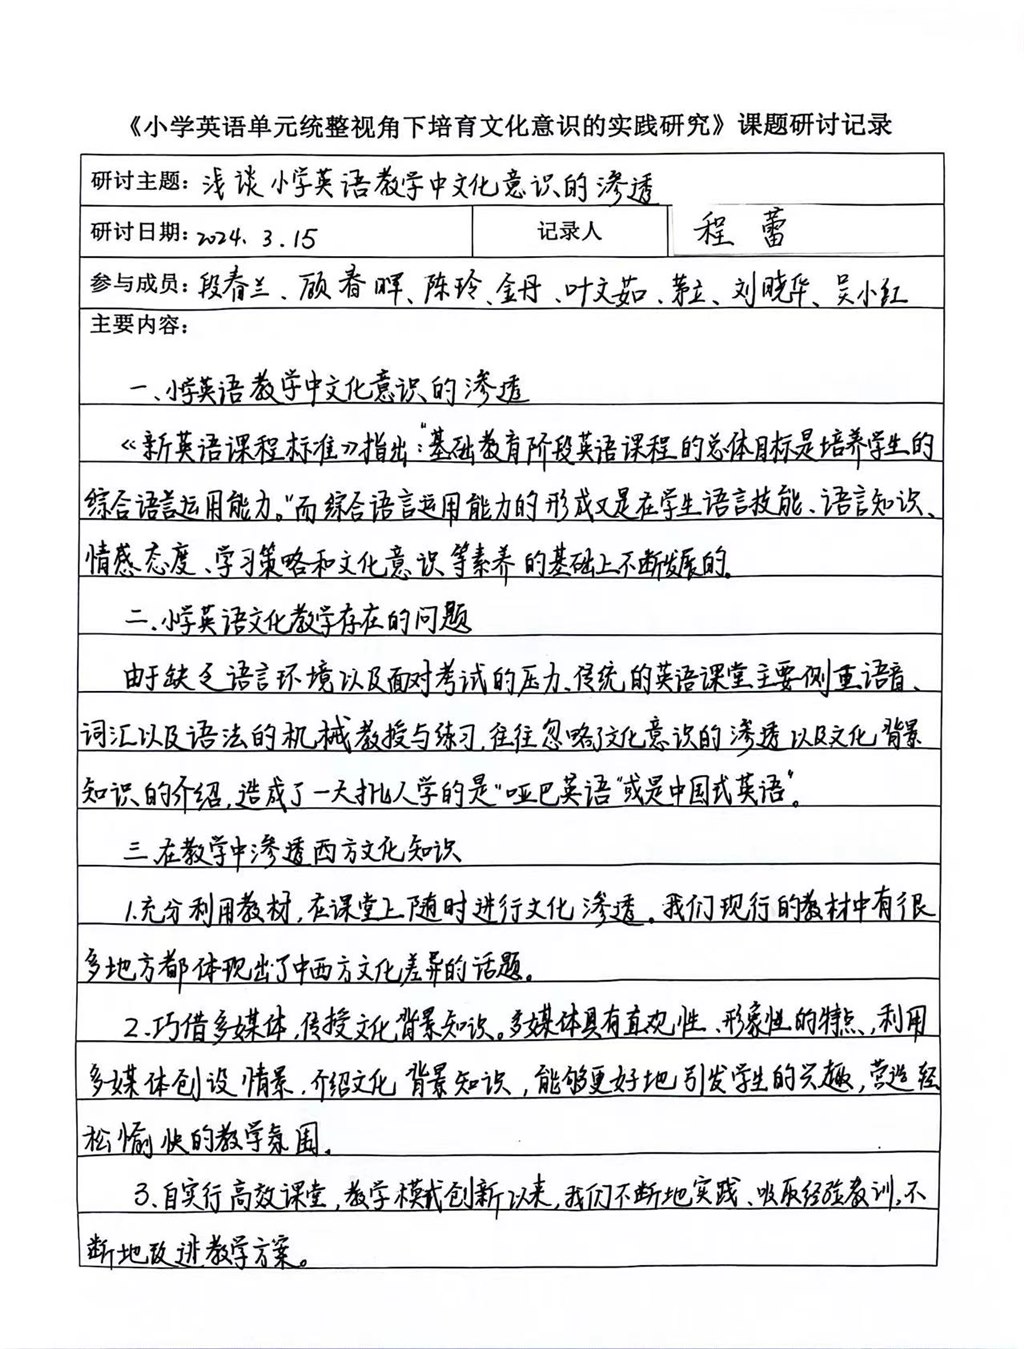 《小学英语单元统整视角下培育文化意识的实践研究》课题研讨记录
研讨主题：浅谈小学英语教学中文化意识的渗透
研讨日期：2024.3.15 记录人 程蕾
参与成员：段春兰、顾春晖、陈玲、金丹、叶文茹、茅立、刘晓华、吴小红
主要内容：
一、小学英语教学中文化意识的渗透
《新英语课程标准》指出："基础教育阶段英语课程的总体目标是培养学生的
综合语言运用能力。"而综合语言运用能力的形成又是在学生语言技能、语言知识、
情感态度、学习策略和文化意识等素养的基础上不断发展的。
二、小学英语文化教学存在的问题
由于缺乏语言环境以及面对考试的压力、传统的英语课堂主要侧重语音、
词汇以及语法的机械教授与练习，往往忽略了文化意识的渗透以及文化背景
知识的介绍，造成了一大批人学的是"哑巴英语"或是中国式英语"。
三、在教学中渗透西方文化知识
1.充分利用教材，在课堂上随时进行文化渗透。我们现行的教材中有很
多地方都体现出了中西方文化差异的话题。
2.巧借多媒体，传授文化背景知识。多媒体具有直观性、形象性的特点，利用
多媒体创设情景，介绍文化背景知识，能够更好地引发学生的兴趣，营造轻
松愉快的教学氛围。
3.自实行高效课堂，教学模式创新以来，我们不断地实践、吸取经验教训，不
断地改进教学方案。